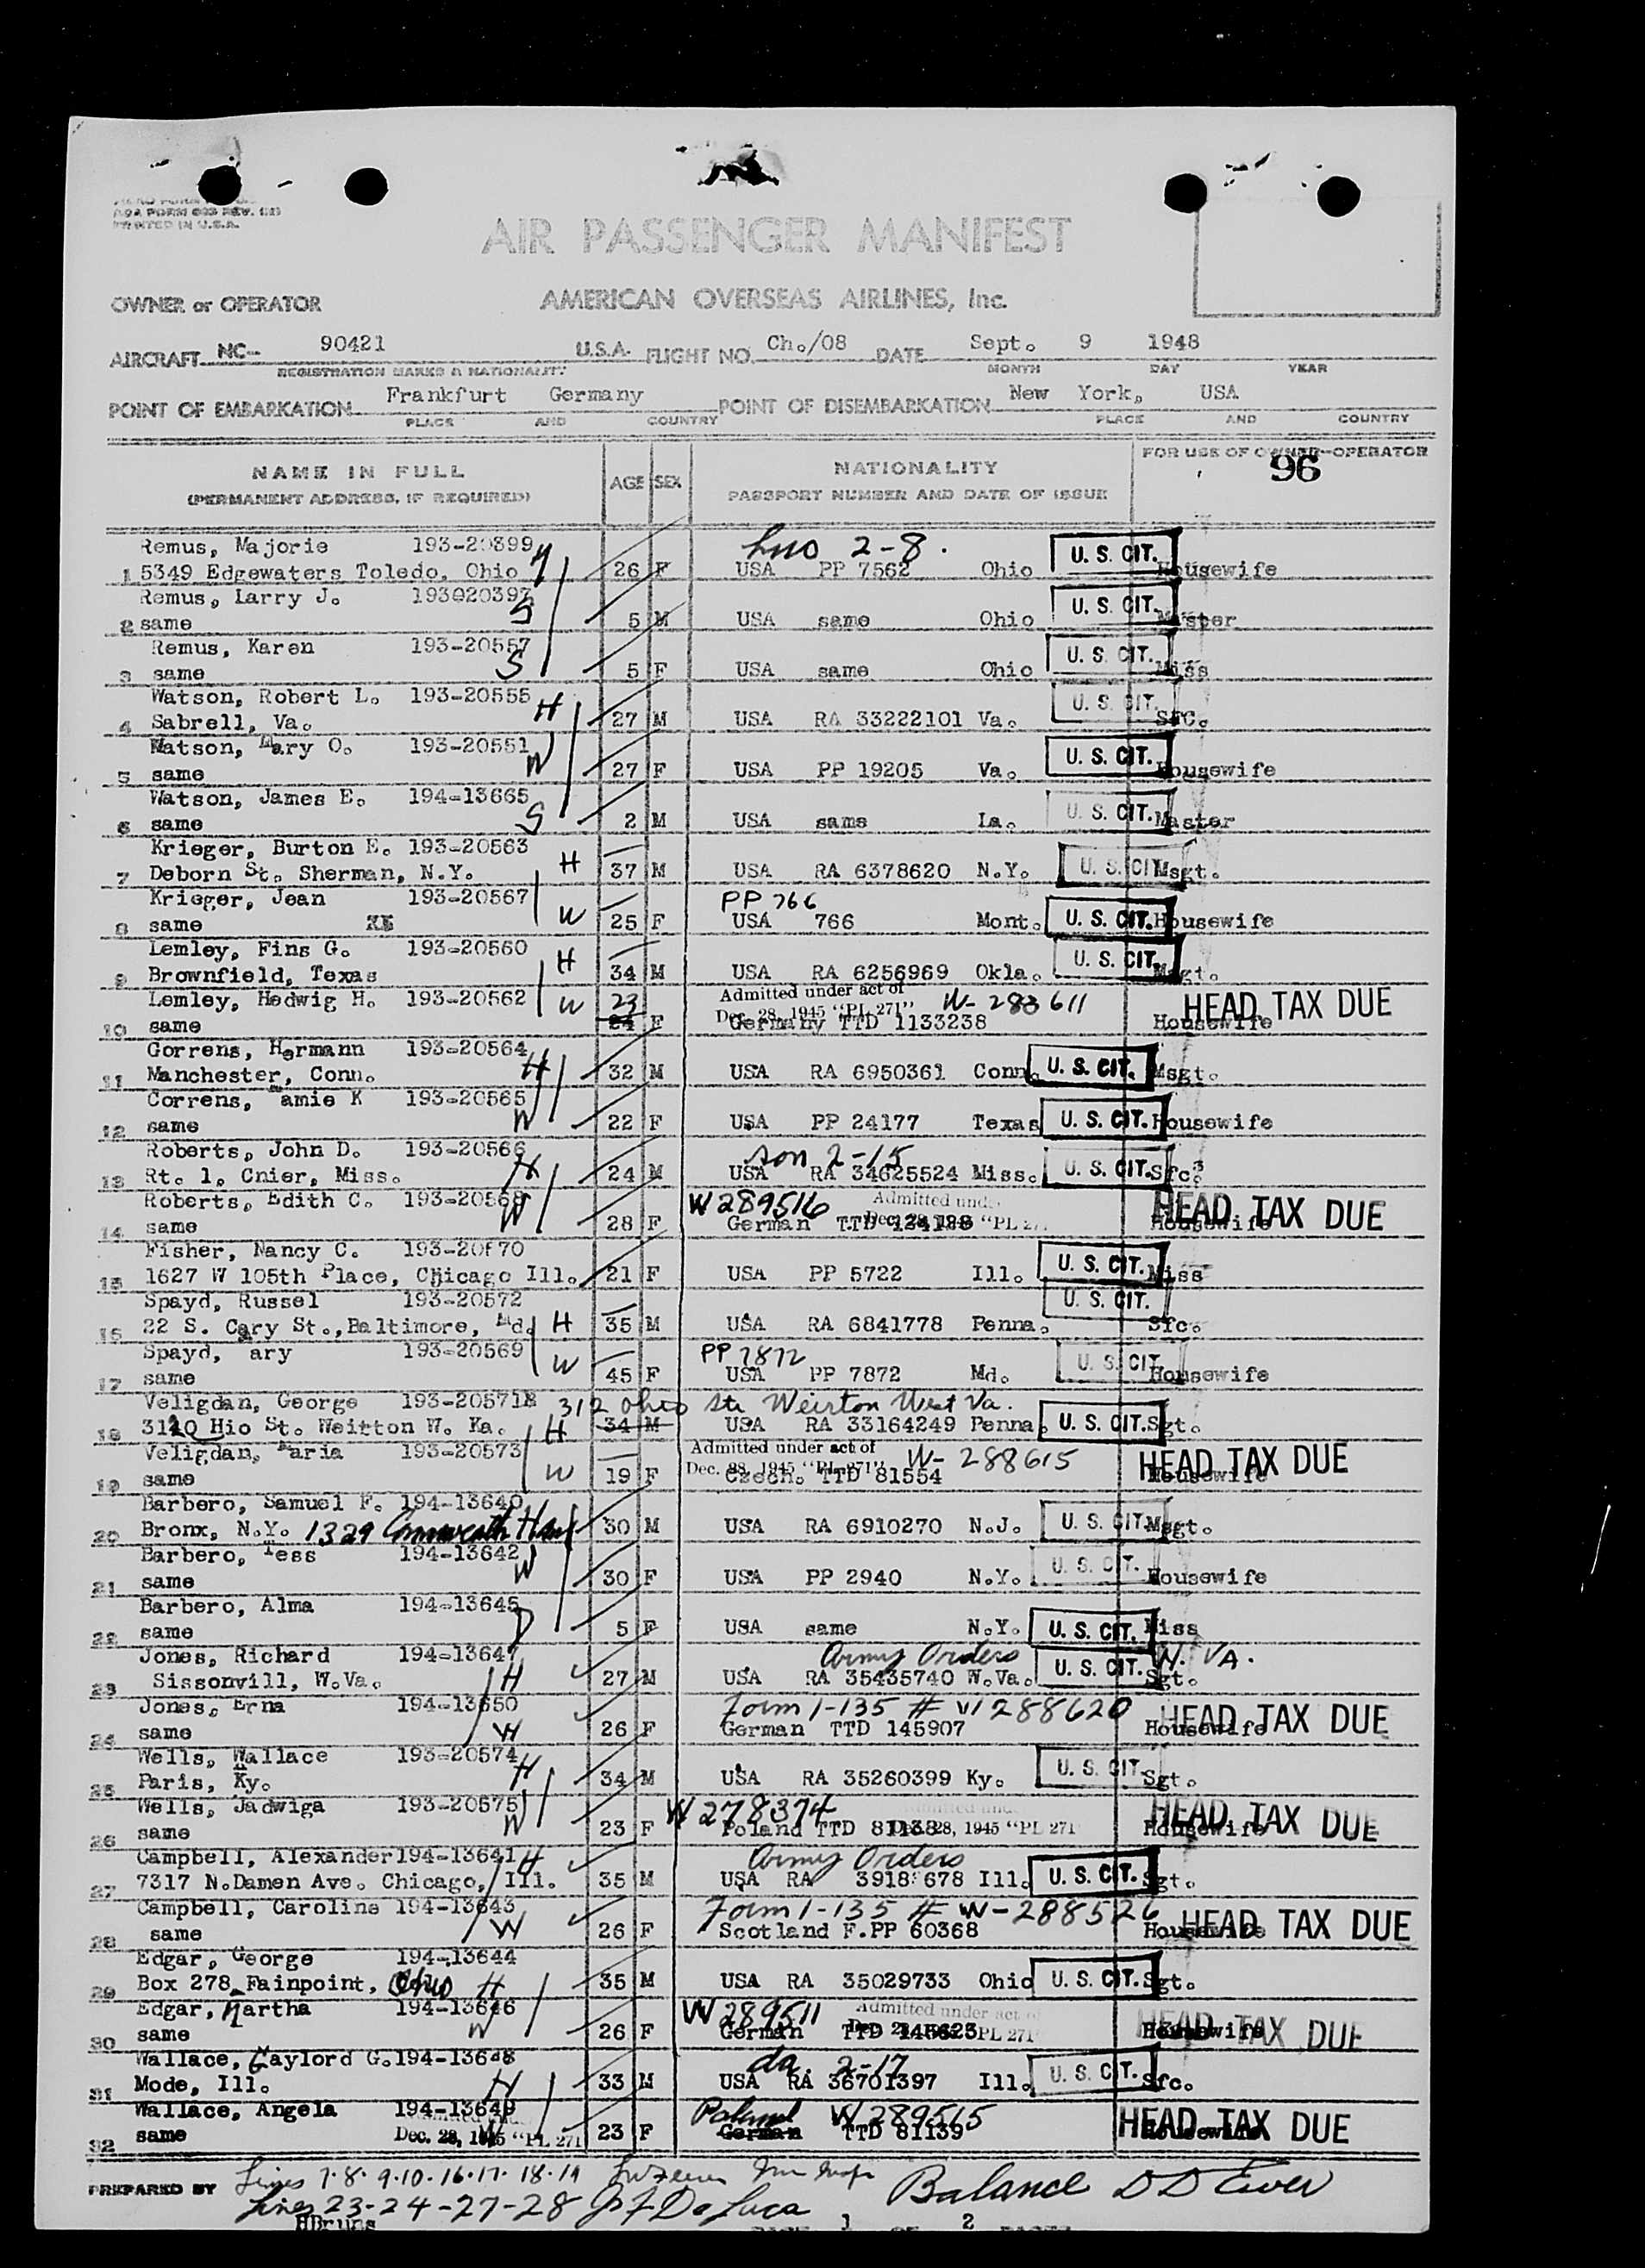 AOA FORM 603 REV.
PRINTED IN U.S.A.
AIR PASSENGER MANIFEST
OWNER or OPERATOR AMERICAN OVERSEAS AIRLINES, Inc.
AIRCRAFT NC- 90421 U.S.A. FLIGHT NO. Ch./08 DATE Sept. 9 1948
REGISTRATION MARKS & NATIONALITY MONTH DAY YEAR
POINT OF EMBARKATION Frankfurt Germany POINT OF DISEMBARKATION New York, USA
PLACE AND COUNTRY PLACE AND COUNTRY
NAME IN FULL AGE SEX NATIONALITY FOR USE OF OWNER-OPERATOR
(PERMANENT ADDRESS, IF REQUIRED) PASSPORT NUMBER AND DATE OF ISSUE 96
Remus, Majorie 193-20399 2-8. U. S. CIT.
1 5349 Edgewaters Toledo, Ohio 26 F USA PP 7562 Ohio Housewife
Remus, Larry J. 193020397 S U. S. CIT.
2 same 5 M USA same Ohio Master
Remus, Karen 193-20557 S U. S. CIT.
3 same 5 F USA same Ohio Miss
Watson, Robert L. 193-20555 H U. S. CIT.
4 Sabrell, Va. 27 M USA RA 33222101 Va. SFC.
Watson, Mary O. 193-20551 W U. S. CIT.
5 same 27 F USA PP 19205 Va. Housewife
Watson, James E. 194-13665 S U. S. CIT.
6 same 2 M USA same La. Master
Krieger, Burton E. 193-20563 H U. S. CIT
7 Deborn St. Sherman, N.Y. 37 M USA RA 6378620 N.Y. Msgt.
Krieger, Jean 193-20567 W PP 766 U. S. CIT.
8 same 25 F USA 766 Mont. Housewife
Lemley, Fins G. 193-20560 H U. S. CIT.
9 Brownfield, Texas 34 M USA RA 6256969 Okla. Msgt.
Lemley, Hedwig H. 193-20562 W 23 Admitted under act of Dec. 28, 1945 "PL 271" W-283611 HEAD TAX DUE
10 same 24 F Germany TTD 1133238 Housewife
Correns, Hermann 193-20564 H U. S. CIT.
11 Manchester, Conn. 32 M USA RA 6950361 Conn. Msgt.
Correns, amie K 193-20565 W U. S. CIT.
12 same 22 F USA PP 24177 Texas Housewife
Roberts, John D. 193-20566 H son 2-15 U. S. CIT.
13 Rt. 1, Cnier, Miss. 24 M USA RA 34625524 Miss. Sfc.
Roberts, Edith C. 193-20568 W W289516 Admitted und HEAD TAX DUE
14 same 28 F German TTD Housewife
Fisher, Nancy C. 193-20f70 U. S. CIT.
15 1627 W 105th Place, Chicago Ill. 21 F USA PP 5722 Ill. Miss
Spayd, Russel 193-20572 U. S. CIT.
16 22 S. Cary St., Baltimore, Md. H 35 M USA RA 6841778 Penna. Sfc.
Spayd, ary 193-20569 W PP 7872 U. S. CIT.
17 same 45 F USA PP 7872 Md. Housewife
Veligdan, George 193-20571 312 Ohio Str Weirton West Va.
18 3110 Hio St. Weitton W. Ka. H 34 M USA RA 33164249 Penna. U. S. CIT. Sgt.
Veligdan, Maria 193-20573 Admitted under act of Dec. 28, 1945 "PL 271" W-288615 HEAD TAX DUE
19 same W 19 F Czech. TTD 81554 Housewife
Barbero, Samuel F. 194-13640 U. S. CIT.
20 Bronx, N.Y. 1329 30 M USA RA 6910270 N.J. Msgt.
Barbero, Tess 194-13642 W U. S. CIT.
21 same 30 F USA PP 2940 N.Y. Housewife
Barbero, Alma 194-13645 D
22 same 5 F USA same N.Y. U. S. CIT. Miss
Jones, Richard 194-13647 H Army Orders W. VA.
23 Sissonvill, W.Va. 27 M USA RA 35435740 W.Va. U. S. CIT. Sgt.
Jones, Erna 194-13650 W Form 1-135 # W288620 HEAD TAX DUE
24 same 26 F German TTD 145907 Housewife
Wells, Wallace 193-20574 H U. S. CIT.
25 Paris, Ky. 34 M USA RA 35260399 Ky. Sgt.
Wells, Jadwiga 193-20575 W W278374 HEAD TAX DUE
26 same 23 F Poland TTD 81138 28, 1945 "PL 271 Housewife
Campbell, Alexander 194-13641 H Army Orders
27 7317 N.Damen Ave. Chicago, Ill. 35 M USA RA 3918 678 Ill. U. S. CIT. Sgt.
Campbell, Caroline 194-13643 W Form 1-135 # W-288526 HEAD TAX DUE
28 same 26 F Scotland F.PP 60368 Housewife
Edgar, George 194-13644
29 Box 278 Fainpoint, Ohio H 35 M USA RA 35029733 Ohio U. S. CIT. Sgt.
Edgar, Martha 194-13646 W W289511 Admitted under act of HEAD TAX DUE
30 same 26 F German TTD PL 271 Housewife
Wallace, Gaylord G. 194-13648 H da. 2-17 U. S. CIT.
31 Mode, Ill. 33 M USA RA 36701397 Ill. Sfc.
Wallace, Angela 194-13649 Poland W289515 HEAD TAX DUE
32 same Dec. 28, 1945 "PL 271 23 F German TTD 81139 Housewife
PREPARED BY Lines 7.8.9.10.16.17.18.19 Balance D D Ewer
Lines 23-24-27-28 J F De Luca
HBruns 1 OF 2